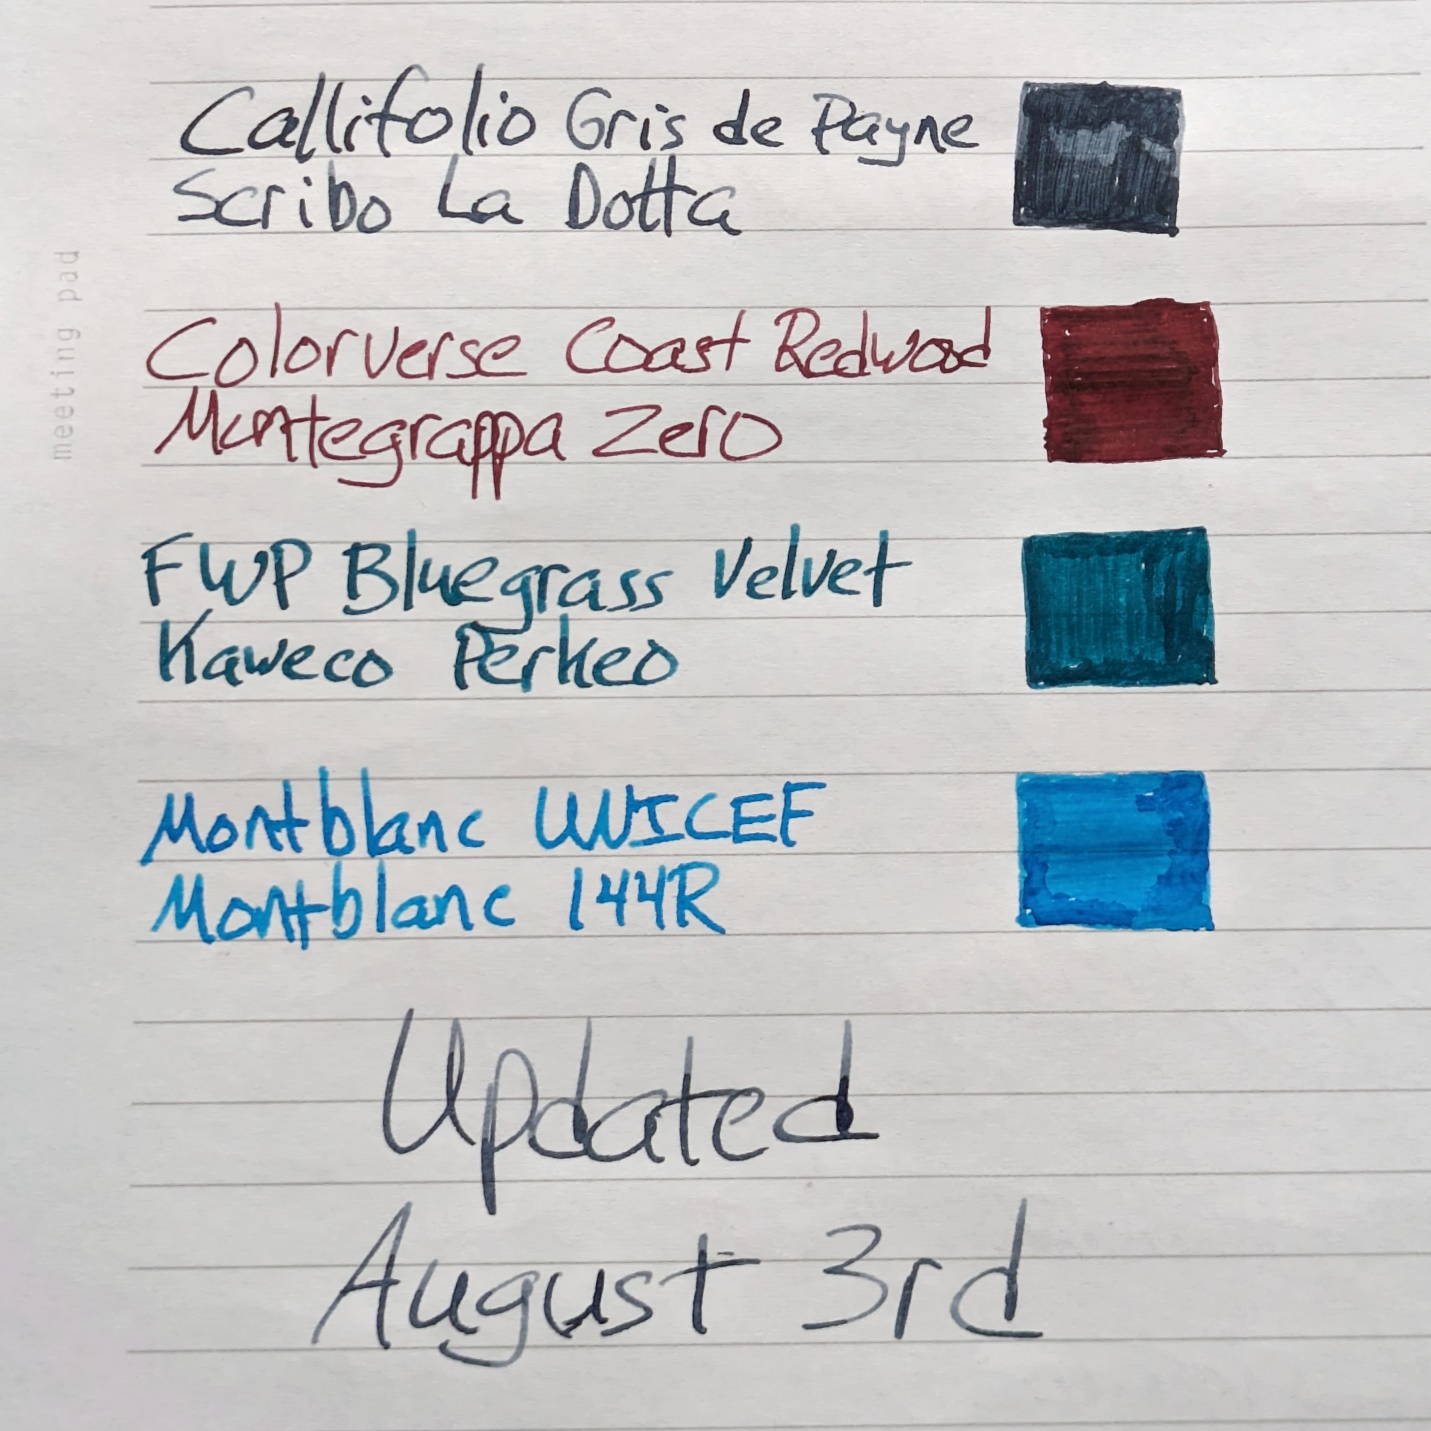 Callifolio Gris de Payne
Scribo La Dotta
meeting pad
Colorverse Coast Redwood
Montegrappa Zero
FWP Bluegrass Velvet
Kaweco Perkeo
Montblanc UNICEF
Montblanc 144R
Updated
August 3rd